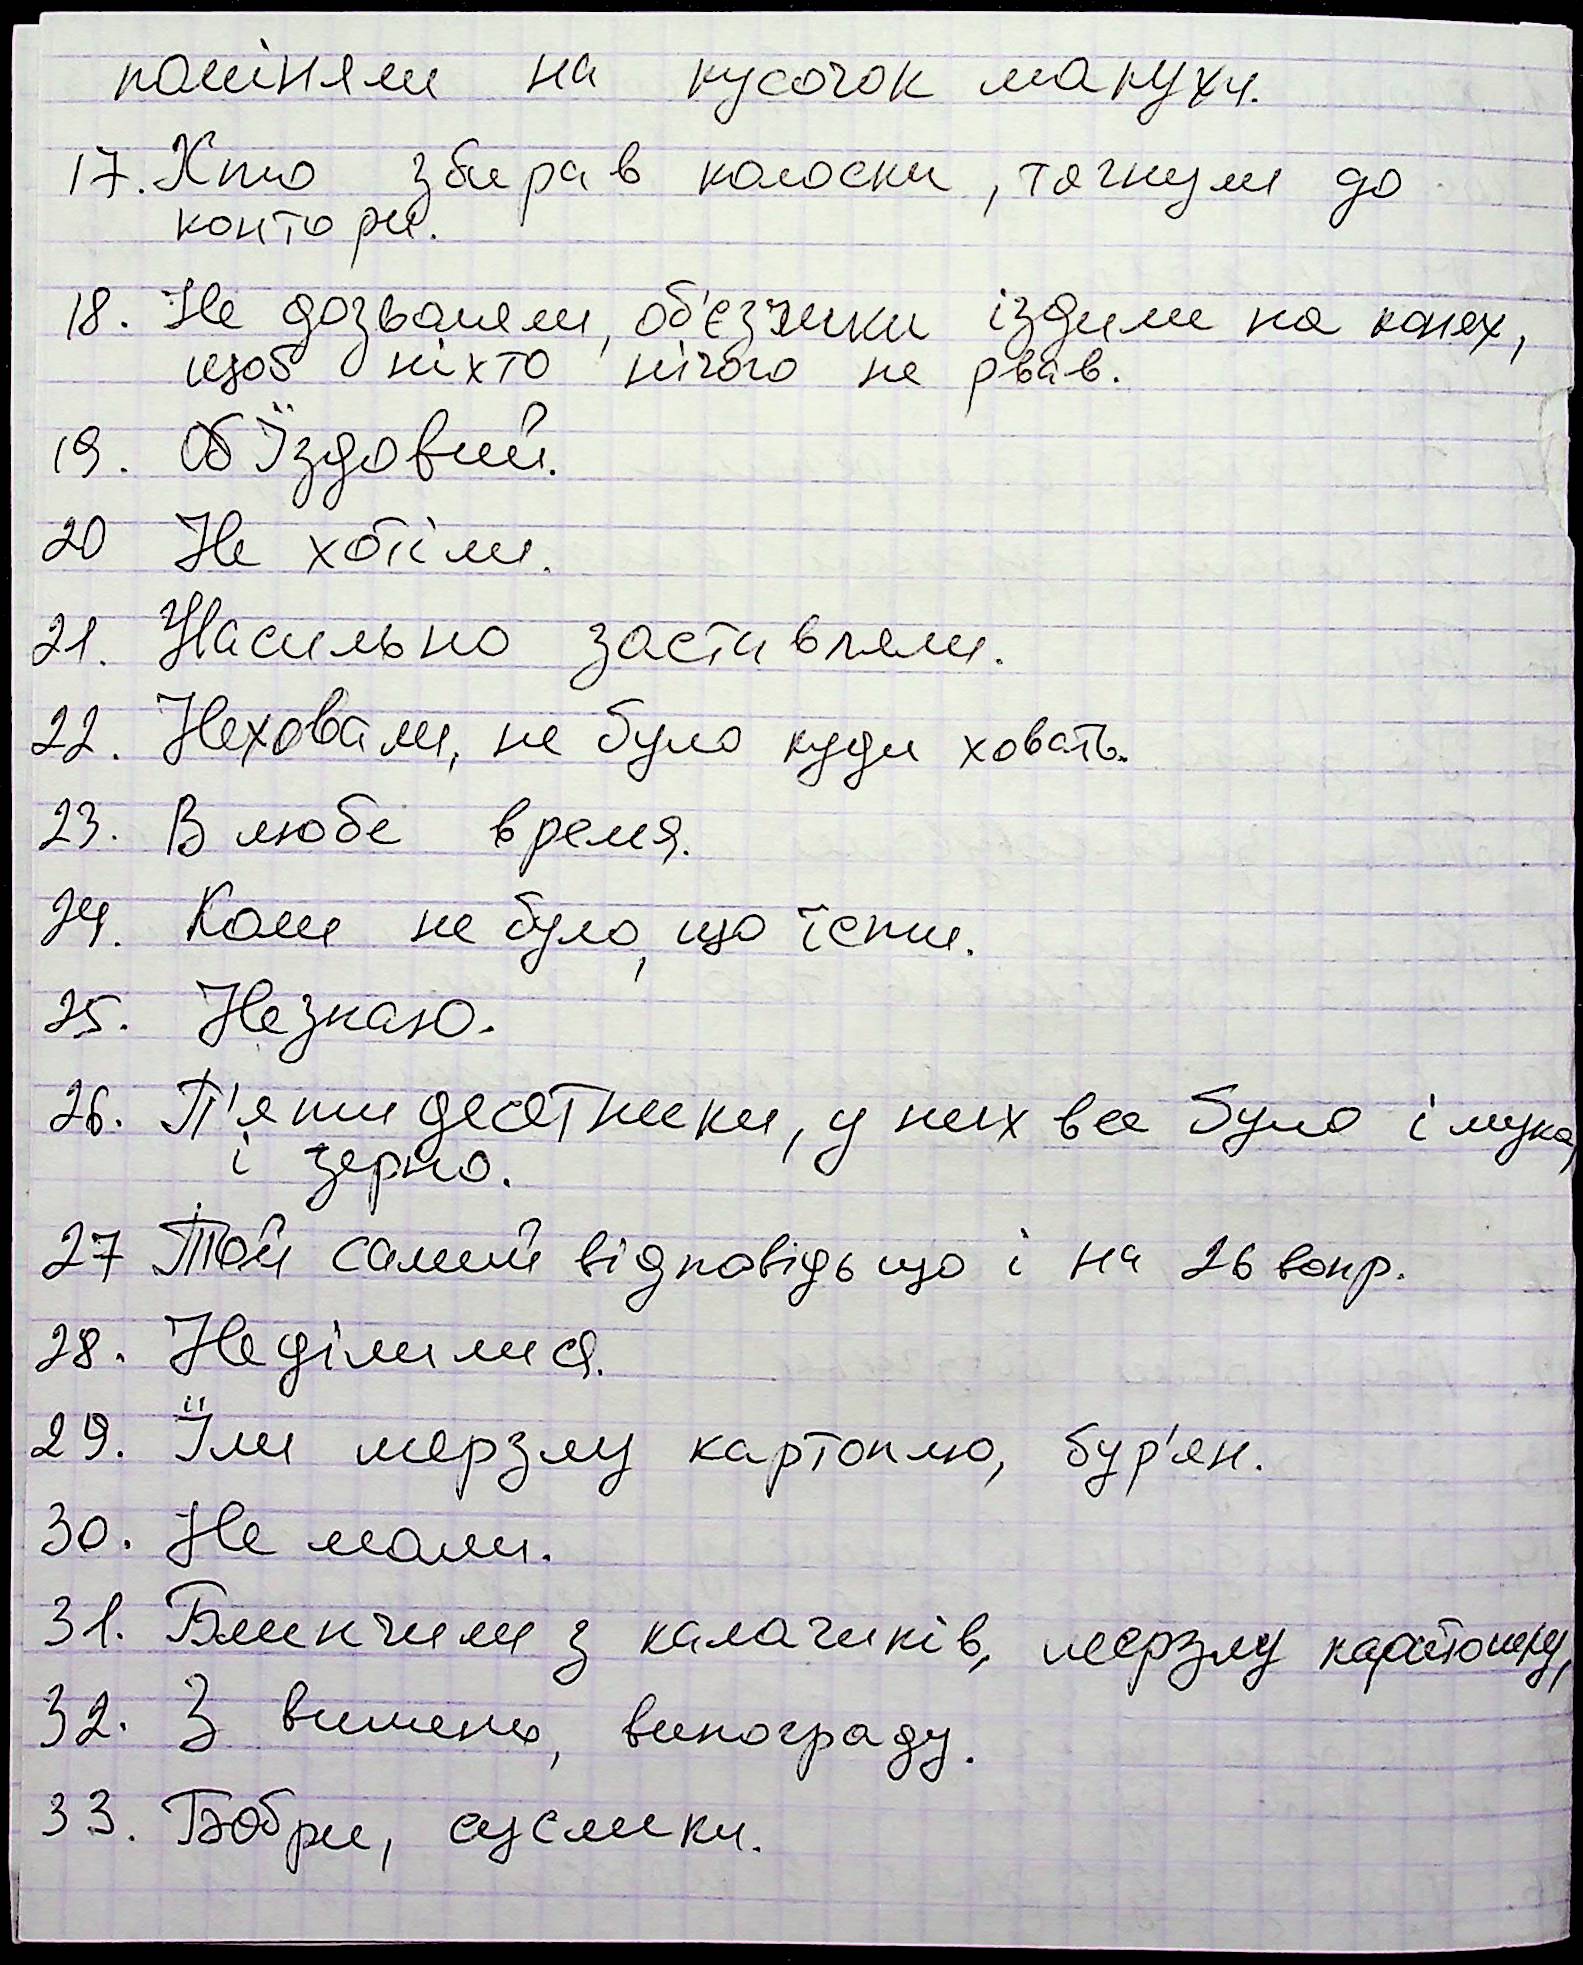 поміняли на кусочок макухи.
17. Хто збирав колоски, тягнули до
контори.
18. Не дозваляли, об'єзчики їздили на конях,
щоб ніхто нічого не рвав.
19. Об'їздовий.
20 Не хотіли.
21. Насильно заставляли.
22. Неховали, не було куди ховать.
23. В любе время.
24. Коли не було, що їсти.
25. Незнаю.
26. П'ятидесятники, у них все було і мука,
і зерно.
27 Той самий відповідь що і на 26 вопр.
28. Неділилися.
29. Їли мерзлу картоплю, бур'ян.
30. Не мали.
31. Блинчики з калачиків, мерзлу картошку,
32. З вишень, винограду.
33. Бобри, суслики.